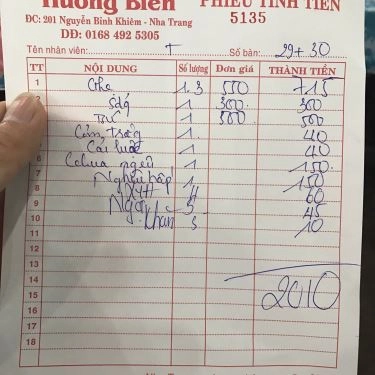 Hương Biển PHIẾU TÍNH TIỀN
ĐC: 201 Nguyễn Bỉnh Khiêm - Nha Trang 5135
DĐ: 0168 492 5305
Tên nhân viên: T Số bàn: 29 + 30
TT NỘI DUNG Số lượng Đơn giá THÀNH TIỀN
1 Ghẹ 1.3 550 715
2 1 300 300
3 1 500 500
4 Cơm trắng 1 40
5 Cải luộc 1 40
6 1 150
7 Nghêu hấp 1 150
8 4 60
9 Ngọt 3 45
10 khăn 5 10
11
12
13
14
15 2010
16
17
18